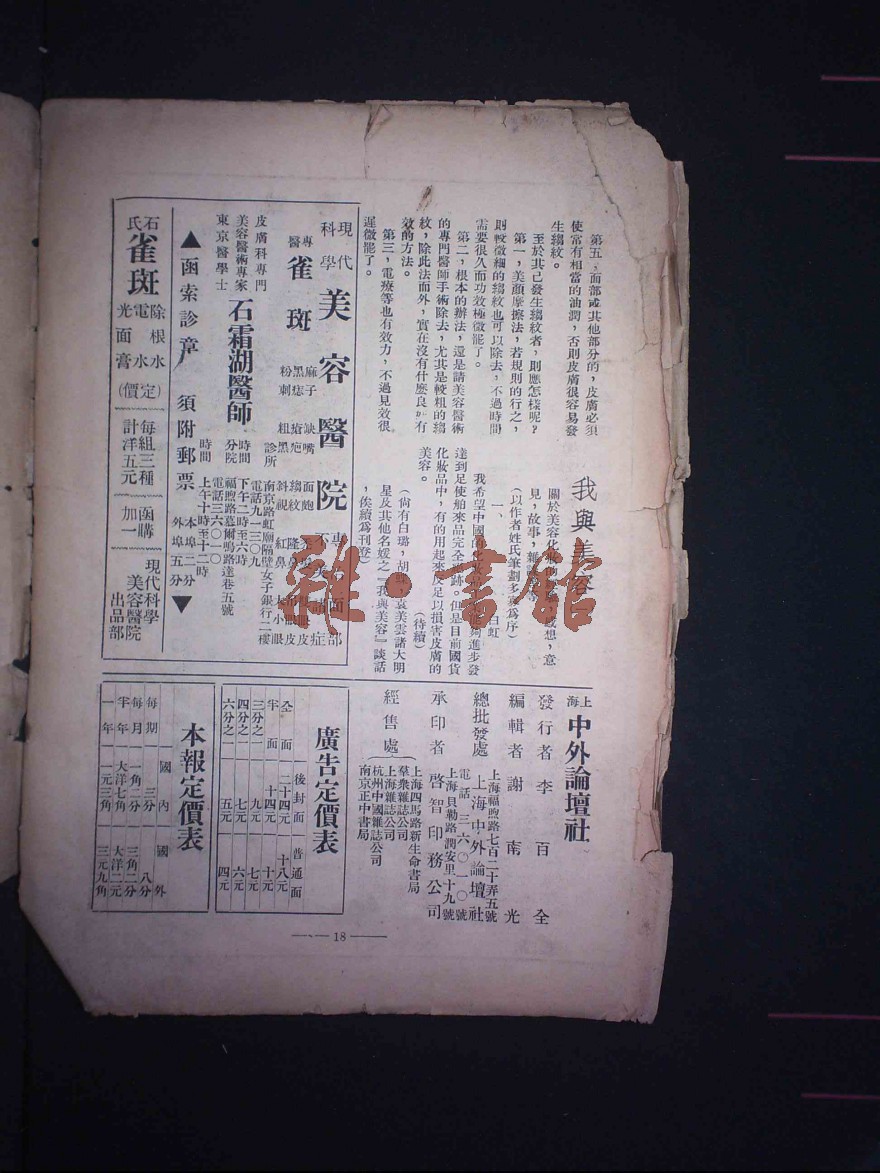 第五，面部或其他部分的，皮膚必須
使常有相當的油潤，否則皮膚很容易發
生縐紋。
至於其已發生縐紋者，則應怎樣呢？
第一，美顏摩擦法，若規則的行之，
則較微細的縐紋也可以除去，不過時間
需要很久而功效極微罷了。
第二，根本的辦法，還是請美容醫術
的專門醫師手術除去，尤其是較粗的縐
紋，除此法而外，實在沒有什麼良好有
效的方法。
第三，電療等也有效力，不過見效很
遲微罷了。
我與美容
關於美容化
感想，意
見，故事，雜
（以作者姓氏筆劃多寡為序）
一、白虹
我希望中國
能夠進步發
達到足使舶來品完全
跡。但是目前國貨
化妝品中，有的用起來反足以損害皮膚的
美容。
（待續）
（尚有白璐，胡
袁美雲諸大明
星及其他名媛之『我與美容』談話
，俟續爲刊登）
現代科學
美容醫院
專醫
雀斑
麻子
黑痣
粉刺
缺嘴
疤
粗黑
面皰
縐紋
斜視
紅鼻
隆鼻
大小眼
部
面
症
皮膚科專門
美容醫術專家
東京醫學士
石霜湖醫師
診所
南京路虹廟隔壁女子銀行二樓
電話九一三〇九
時間
下午二時至六時
分院
福煦路慕爾鳴路達巷五號
電話三六〇一〇
時間
上午十時至十二時
▲函索診章 須附郵票 本埠二分 外埠五分▼
石氏
雀斑
除根水
電水
光面膏
（定價）
每組三種
計洋五元
函購
加一
現代科學
美容醫院
出品部
上海 中外論壇社
發行者 李百全
編輯者 謝南光
上海福煦路七百二十弄五號
總批發處 上海中外論壇社
電話 三六〇一〇號
上海貝勒路潤安里十九號
承印者 啓智印務公司
經售處
上海四馬路新生命書局
羣衆雜誌公司
上海雜誌公司
杭州中國雜誌公司
南京正中書局
廣告定價表
後封面 普通面
全面 二十四元 十八元
半面 十四元 十元
三分之一 九元 七元
四分之一 七元 六元
六分之一 五元 四元
本報定價表
國內 國外
每期 三分 八分
每月 一角二分 三角二分
半年 大洋七角 大洋二元
一年 一元三角 三元九角
18
雜·書館